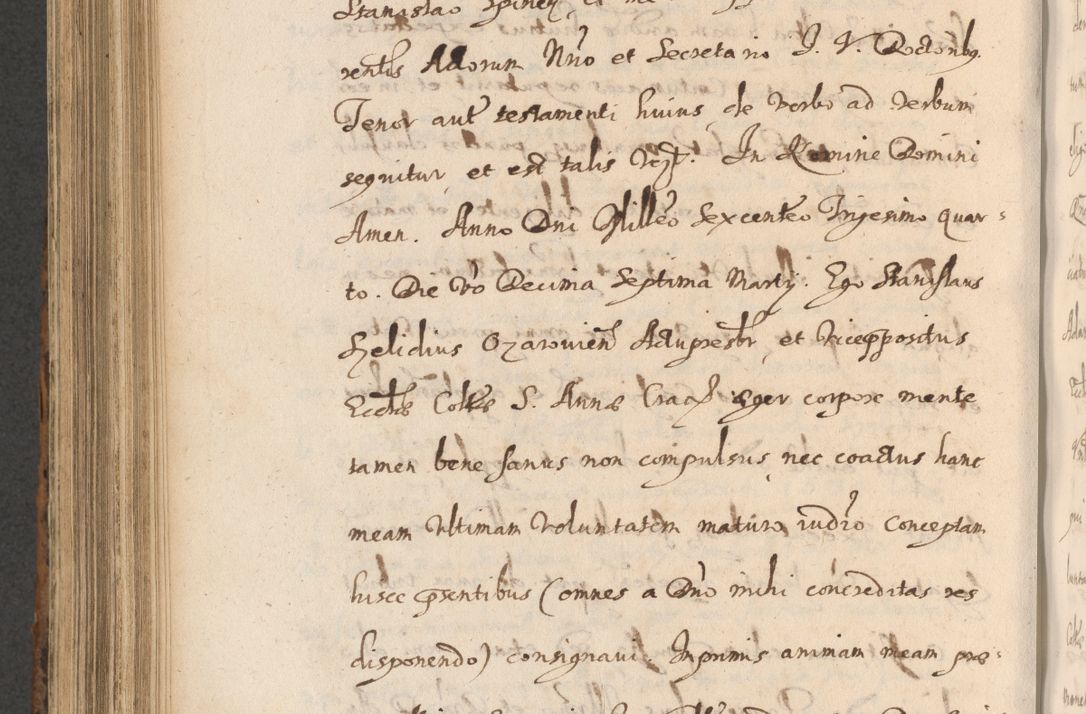 Stanislao
rentis Actorum Nr̃o et Secretario J. V. Doctoribq̃.
Tenor aut̃ testamenti huius de verbo ad verbum
sequitur, et est talis In Nomine Domini
Amen. Anno Dni Milleo Sexcenteo Trigesimo quar=
to. Die Vo Decima Septima Martij. Ego Stanislaus
Helidius Ozarovien̄ et Vicepposidus
Eccłs Colłs S. Annæ Crac̄ æger corpore mente
tamen bene sanus non compulsus, nec coactus hanc
meam Ultimam Voluntatem maturo iudr̃o conceptam
hisce pr̃sentibus (omnes a Dño mihi concreditas res
disponendo) consignavi. Inprimis animam meam præ=